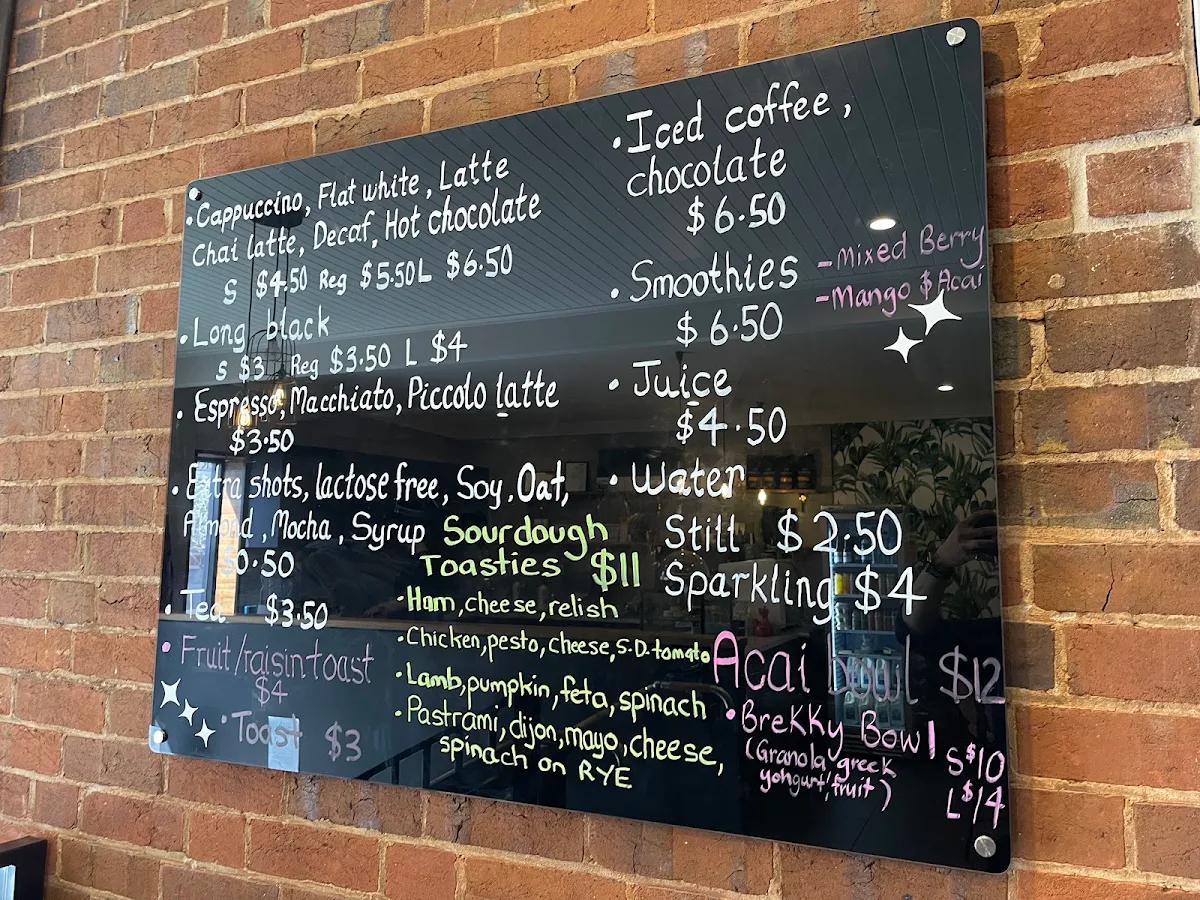 • Cappuccino, Flat white, Latte
Chai latte, Decaf, Hot chocolate
S $4.50 Reg $5.50 L $6.50
• Long black
S $3 Reg $3.50 L $4
• Espresso, Macchiato, Piccolo latte
$3.50
• Extra shots, lactose free, Soy, Oat,
Almond, Mocha, Syrup
$0.50
• Tea $3.50
• Fruit/raisin toast
$4
• Toast $3
Sourdough
Toasties $11
• Ham, cheese, relish
• Chicken, pesto, cheese, S.D. tomato
• Lamb, pumpkin, feta, spinach
• Pastrami, dijon, mayo, cheese,
spinach on RYE
• Iced coffee,
chocolate
$6.50
• Smoothies
$6.50
- Mixed Berry
- Mango $ Acai
• Juice
$4.50
• Water
Still $2.50
Sparkling $4
Acai bowl $12
• BreKKy Bowl
(Granola greek
yohgurt, fruit)
S $10
L $14